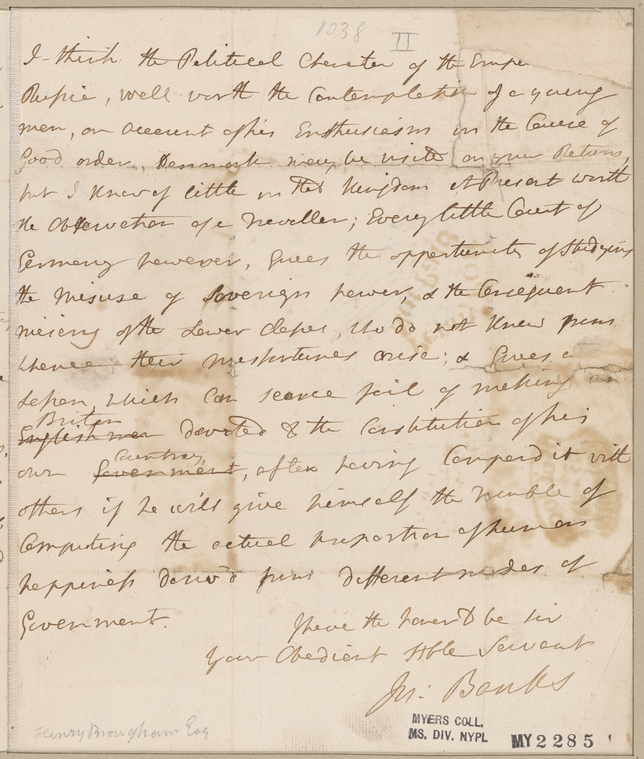 1038 II
I think the Political Character of the Emper
Russia, well worth the Contemplation of a young
man, on account of his Enthusiasm in the Cause of
Good order, Denmark may be visited on your Return,
but I know of little in that Kingdom at Present worth
the Observation of a Traveller; Every little Court of
Germany however, gives the opportunity of Studying
the misuse of Sovereign power, & the Consequent
misery of the Lower Classes, who do not know from
whence their misfortunes arise; & gives a
Lesson, which Can scarce fail of making an
Briton
Englishman devoted to the Constitution of his
Country
own Government, after having Compard it with
others if he will give himself the trouble of
Computing the actual proportion of human
happiness derivd from different modes of
Government.
I have the honor to be Sir
Your Obedient Hble Servant
Jos: Banks
Henry Brougham Esq
MYERS COLL.
MS. DIV. NYPL
MY 2285